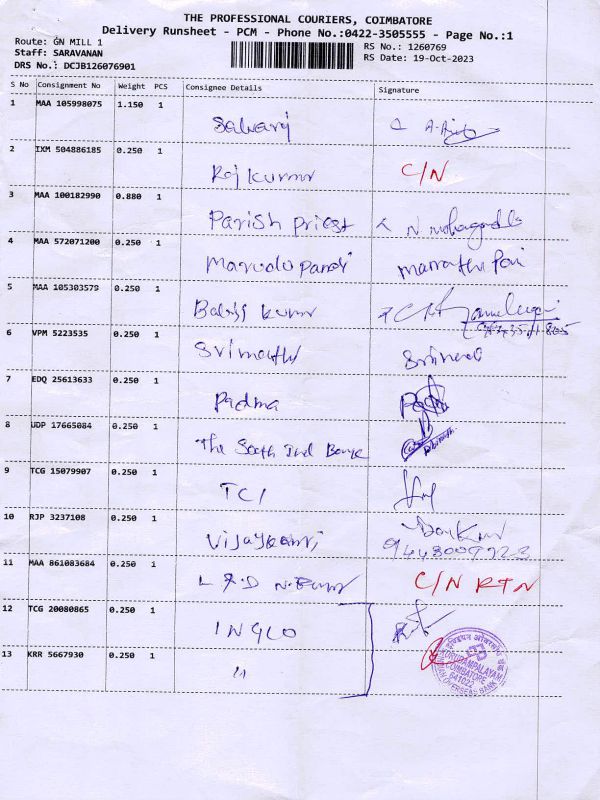 THE PROFESSIONAL COURIERS, COIMBATORE
Delivery Runsheet - PCM - Phone No.:0422-3505555 - Page No.:1
Route: GN MILL 1
RS No.: 1260769
Staff: SARAVANAN
RS Date: 19-Oct-2023
DRS No.: DCJB126076901
S No Consignment No Weight PCS Consignee Details Signature
1 MAA 105998075 1.150 1
Selvaraj
2 IXM 504886185 0.250 1
Rajkumar C/N
3 MAA 100182990 0.880 1
Parish priest
4 MAA 572071200 0.250 1
Marudu pandi
5 MAA 105303579 0.250 1
Balaji kumar
6 VPM 5223535 0.250 1
Srimathi
7 EDQ 25613633 0.250 1
Padma
8 UDP 17665084 0.250 1
The South Ind Bank
9 TCG 15079907 0.250 1
TCI
10 RJP 3237108 0.250 1
11 MAA 861083684 0.250 1
C/N RTN
12 TCG 20080865 0.250 1
INGLO
13 KRR 5667930 0.250 1
"
COIMBATORE
641022